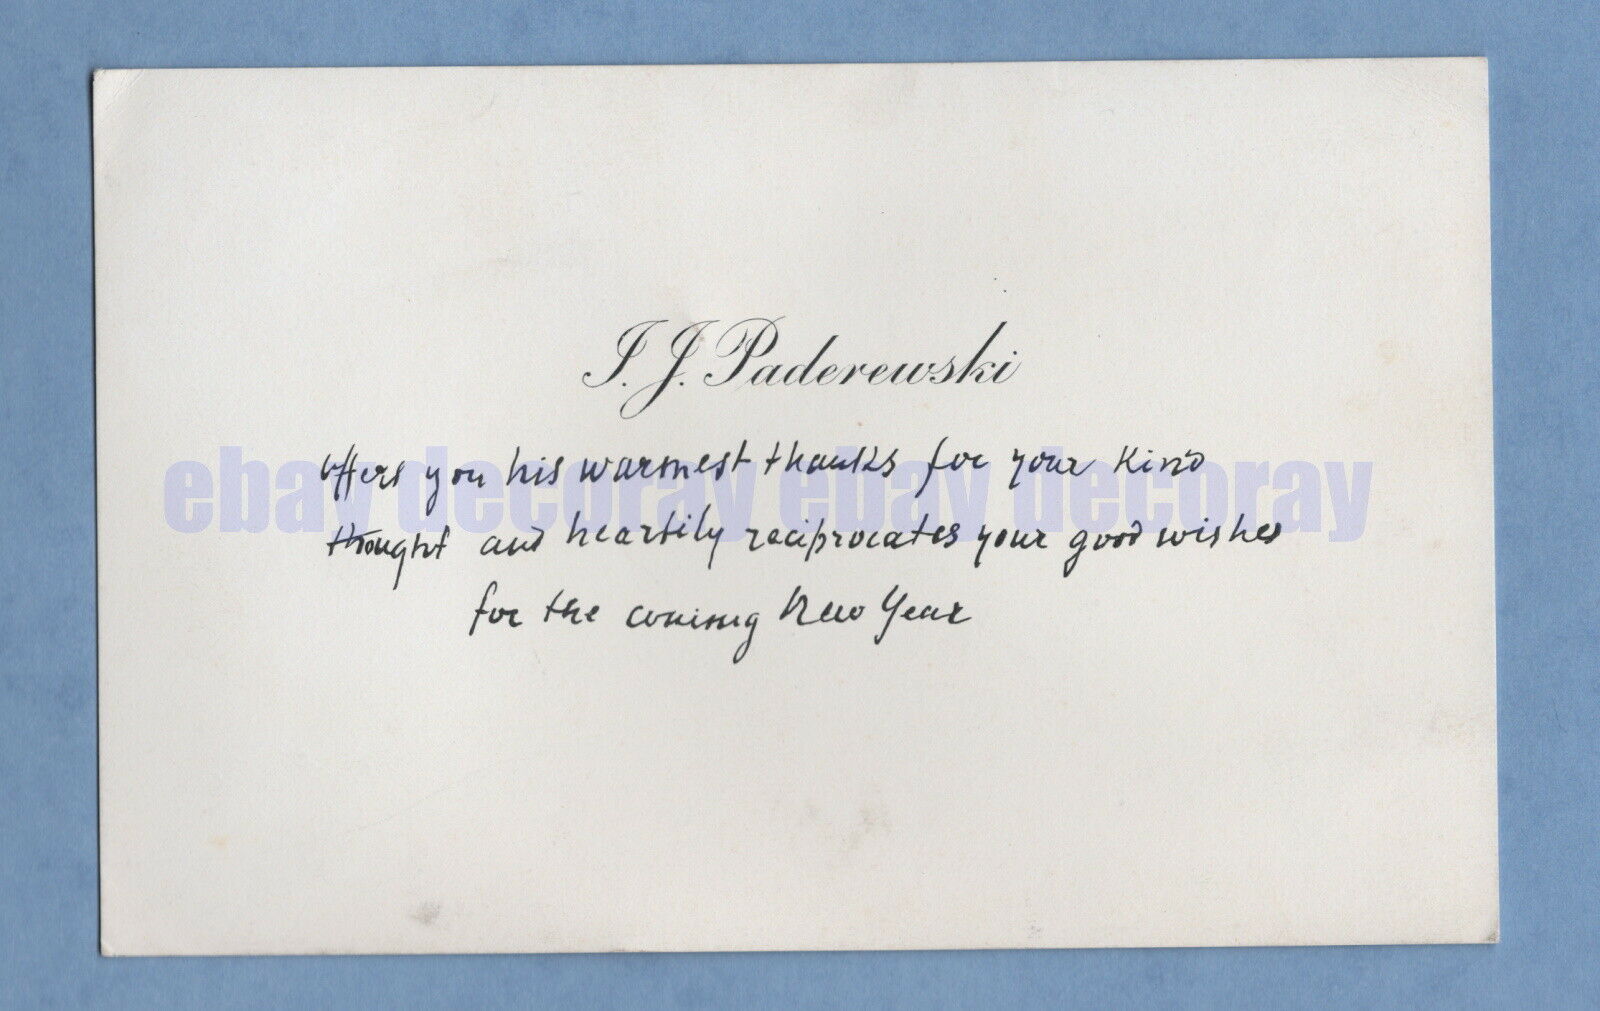 I. J. Paderewski
offers you his warmest thanks for your kind
thought and heartily reciprocates your good wishes
for the coming New Year
ebay decoray ebay decoray